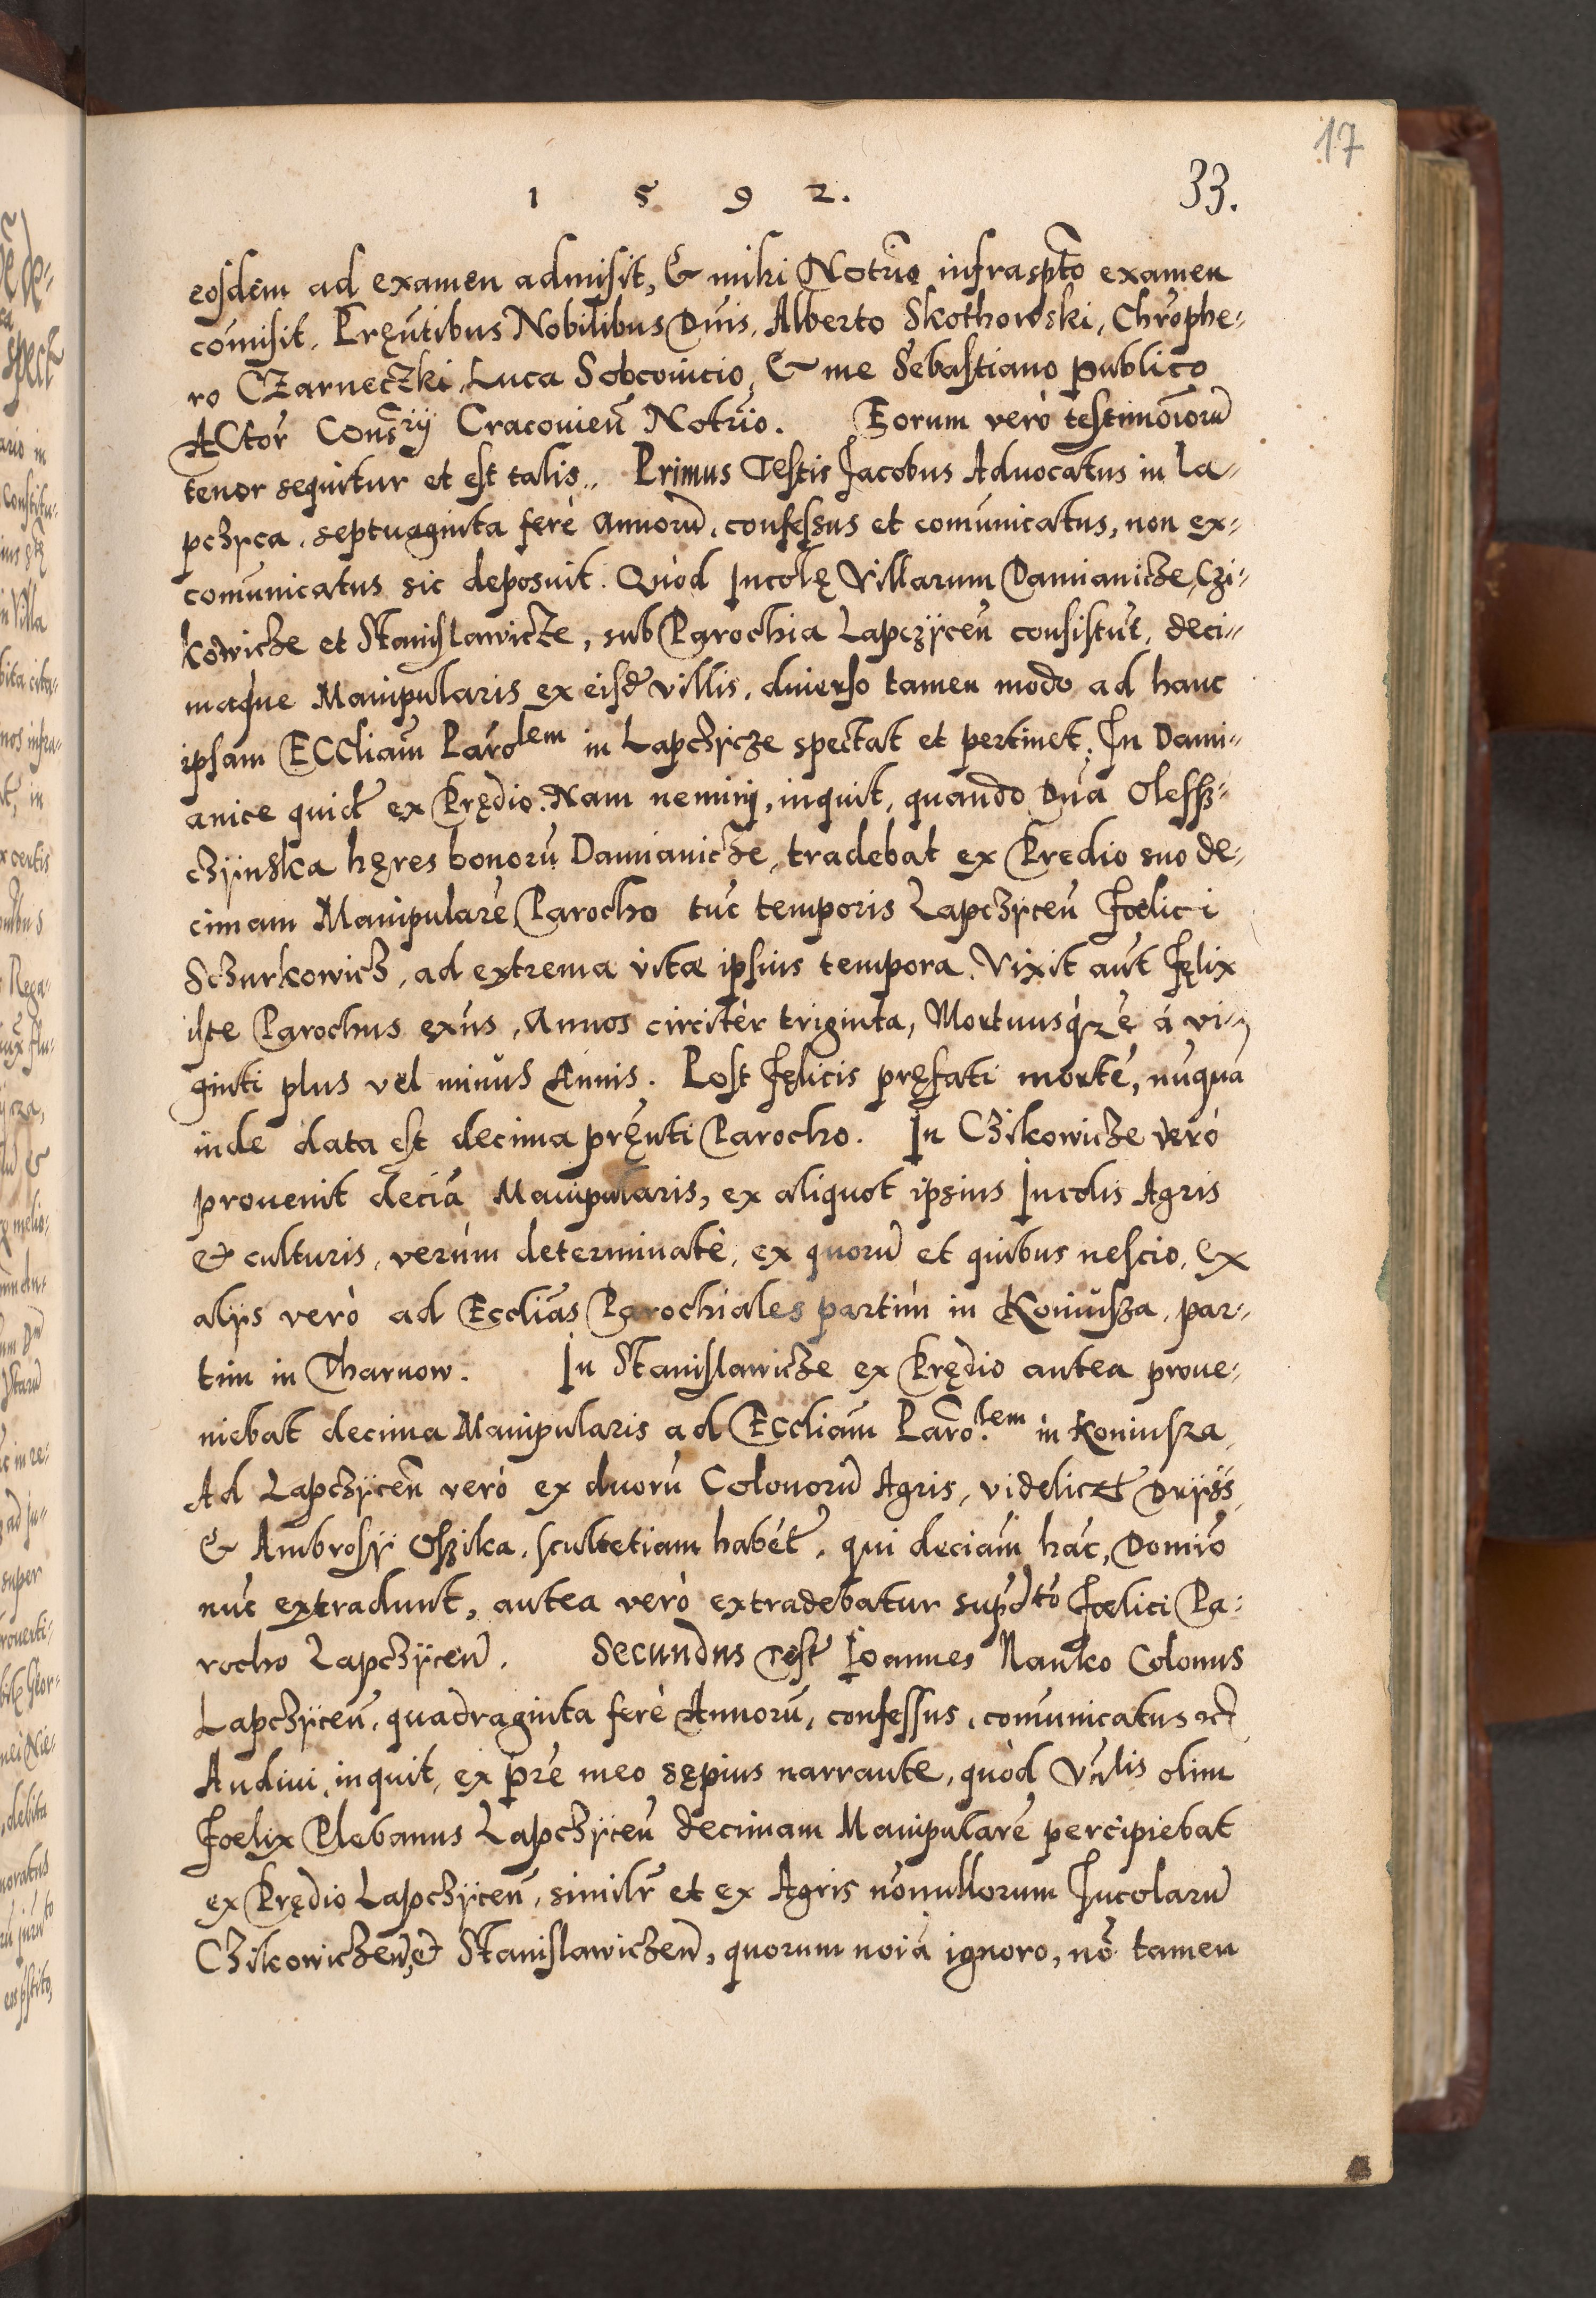 17
1 5 9 2. 33.
eosdem ad examen admisit, & mihi Notrio infraspto examen
cõmisit. Pręntibus Nobilibus Dnis, Alberto Skothowski, Chrophe-
ro CZarneczki, Luca Sobcouicio, & me Sebastiano publico
ACtor Consrij Cracouien Notrio. Eorum verò testimoiorũ
tenor sequitur et est talis. Primus Testis Jacobus Aduocatus in La-
pczyca, septuaginta ferè Annorũ, confessus et comunicatus, non ex-
comunicatus sic deposuit. Quòd Incolę Villarum Damianicze, Czi-
kowicze et Stanislawicze, sub Parochia Lapczÿcen consistũt, deci-
maque Manipularis ex eisd villis, diuerso tamen modo ad hanc
ipsam ECCliam Parolem in Lapczÿcze spectat et pertinet. In Dami-
anice quid ex Prędio. Nam nemini, inquit, quando Dna Olessz-
czÿnska hęres bonorũ Damianicze, tradebat ex Predio suo de-
cimam Manipularẽ Parocho tũc temporis Lapczÿcen Foelici
Sczurkowicz, ad extrema vitæ ipsius tempora. Vixit aut Fęlix
iste Parochus exũs, Annos circitèr triginta, Mortuusq; ẽ à vi-
ginti plus vel minùs Annis. Post Fęlicis pręfati mortẽ, nũqua
inde data est decima pręnti Parocho. In Czikowicze verò
prouenit deciã Manipularis, ex aliquot ipsius Incolis Agris
& culturis, verùm determinatè, ex quorũ et quibus nescio, ex
alijs verò ad Ecclias Parochiales partim in Koniusza, par-
tim in Tharnow. In Stanislawicze ex Prędio antea proue-
niebat decima Manipularis ad Eccliam Paro.lem in Koniusza,
Ad Lapczÿcen verò ex duorũ Colonorũ Agris, videlicet Dryss
& Ambrosÿ Oszika, scultetiam habẽt, qui deciam hãc, Domiò
nũc extradunt, antea verò extradebatur supdto Foelici Pa-
rocho Lapczÿcen. Secundus Test Joannes Nanko Colonus
Lapczÿcen, quadraginta ferè Annorũ, confessus, comunicatus etc
Audiui, inquit, ex pre meo sępius narrante, quòd Vnlis olim
Foelix Plebanus Lapczÿcen decimam Manipularẽ percipiebat
ex Prędio Lapczÿcen, similr et ex Agris nõnullorum Incolarũ
Czikowiczen, et Stanislawiczen, quorum noiã ignoro, nõ tamen